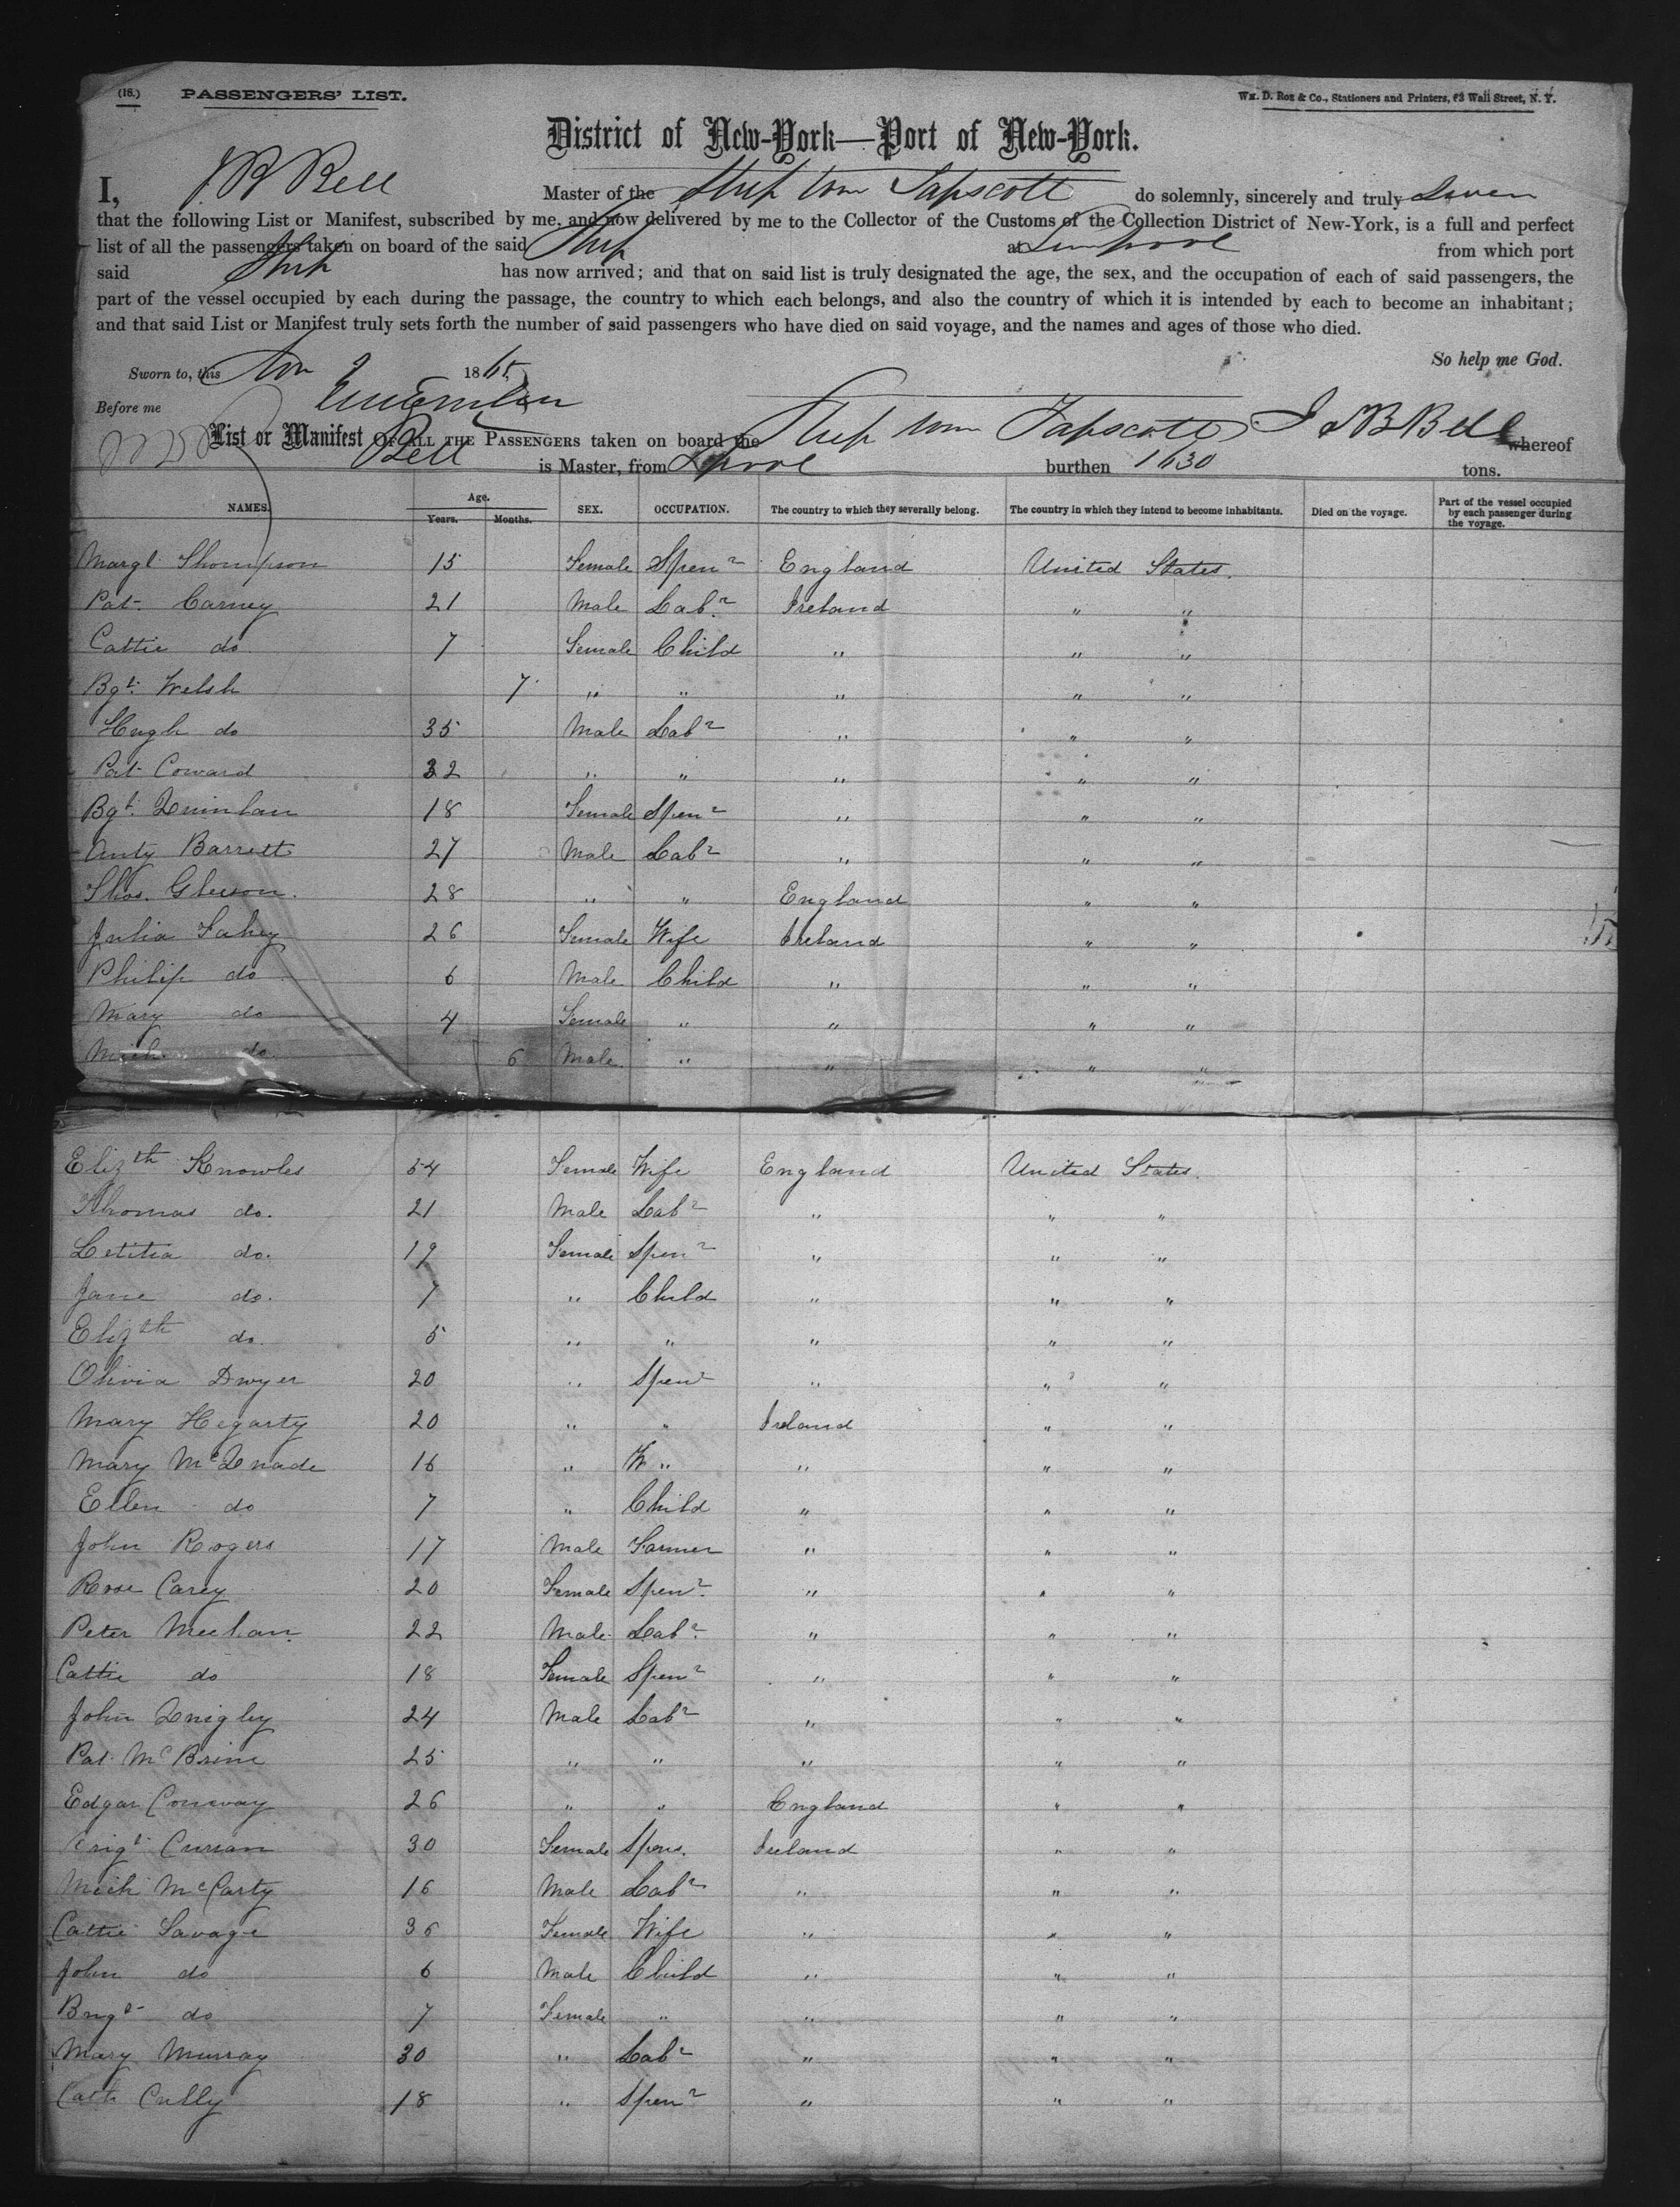 (18.) PASSENGERS' LIST. Wm. D. Roe & Co., Stationers and Printers, 63 Wall Street, N. Y.
District of New-York—Port of New-York.
I, J B Bell Master of the Ship Wm Tapscott do solemnly, sincerely and truly Swear
that the following List or Manifest, subscribed by me, and now delivered by me to the Collector of the Customs of the Collection District of New-York, is a full and perfect
list of all the passengers taken on board of the said Ship at Liverpool from which port
said Ship has now arrived; and that on said list is truly designated the age, the sex, and the occupation of each of said passengers, the
part of the vessel occupied by each during the passage, the country to which each belongs, and also the country of which it is intended by each to become an inhabitant;
and that said List or Manifest truly sets forth the number of said passengers who have died on said voyage, and the names and ages of those who died.
So help me God.
Sworn to, this Nov 9 1865
Before me
List or Manifest OF ALL THE PASSENGERS taken on board the Ship Wm Tapscott J B Bell whereof
Bell is Master, from Lpool burthen 1630 tons.
NAMES. Age. Years. Months. SEX. OCCUPATION. The country to which they severally belong. The country in which they intend to become inhabitants. Died on the voyage. Part of the vessel occupied by each passenger during the voyage.
Margt Thompson 15 Female Spenr England United States.
Pat Carney 21 Male Labr Ireland " "
Cattie do 7 Female Child " " "
Bgt. Welsh 7 " " " " "
Hugh do 35 Male Labr " " "
Pat Coward 32 " " " " "
Bgt. Quinlan 18 Female Spenr " " "
Anty Barrett 27 Male Labr " " "
Thos. Gleeson. 28 " " England " "
Julia Fahey 26 Female Wife Ireland " "
Philip do 6 Male Child " " "
Mary do 4 Female " " " "
Mich do 6 Male " " " "
Elizth Knowles 54 Female Wife England United States.
Thomas do. 21 Male Labr " " "
Letitia do. 19 Female Spenr " " "
Jane do. 7 " Child " " "
Elizth do. 5 " " " " "
Olivia Dwyer 20 " Spenr " " "
Mary Hegarty 20 " " Ireland " "
Mary McQuade 16 " W " " " "
Ellen do 7 " Child " " "
John Rogers 17 Male Farmer " " "
Rose Carey 20 Female Spenr. " " "
Peter Meehan 22 Male Labr. " " "
Cattie do 18 Female Spenr " " "
John Quigley 24 Male Labr " " "
Pat McBrine 25 " " " " "
Edgar Conway 26 " " England " "
Brigt Curran 30 Female Spens. Ireland " "
Mich McCarty 16 Male Labr " " "
Cattie Savage 36 Female Wife " " "
John do 6 Male Child " " "
Brigt do 7 Female " " " "
Mary Murray 30 " Labr " " "
Cath Cully 18 " Spenr " " "